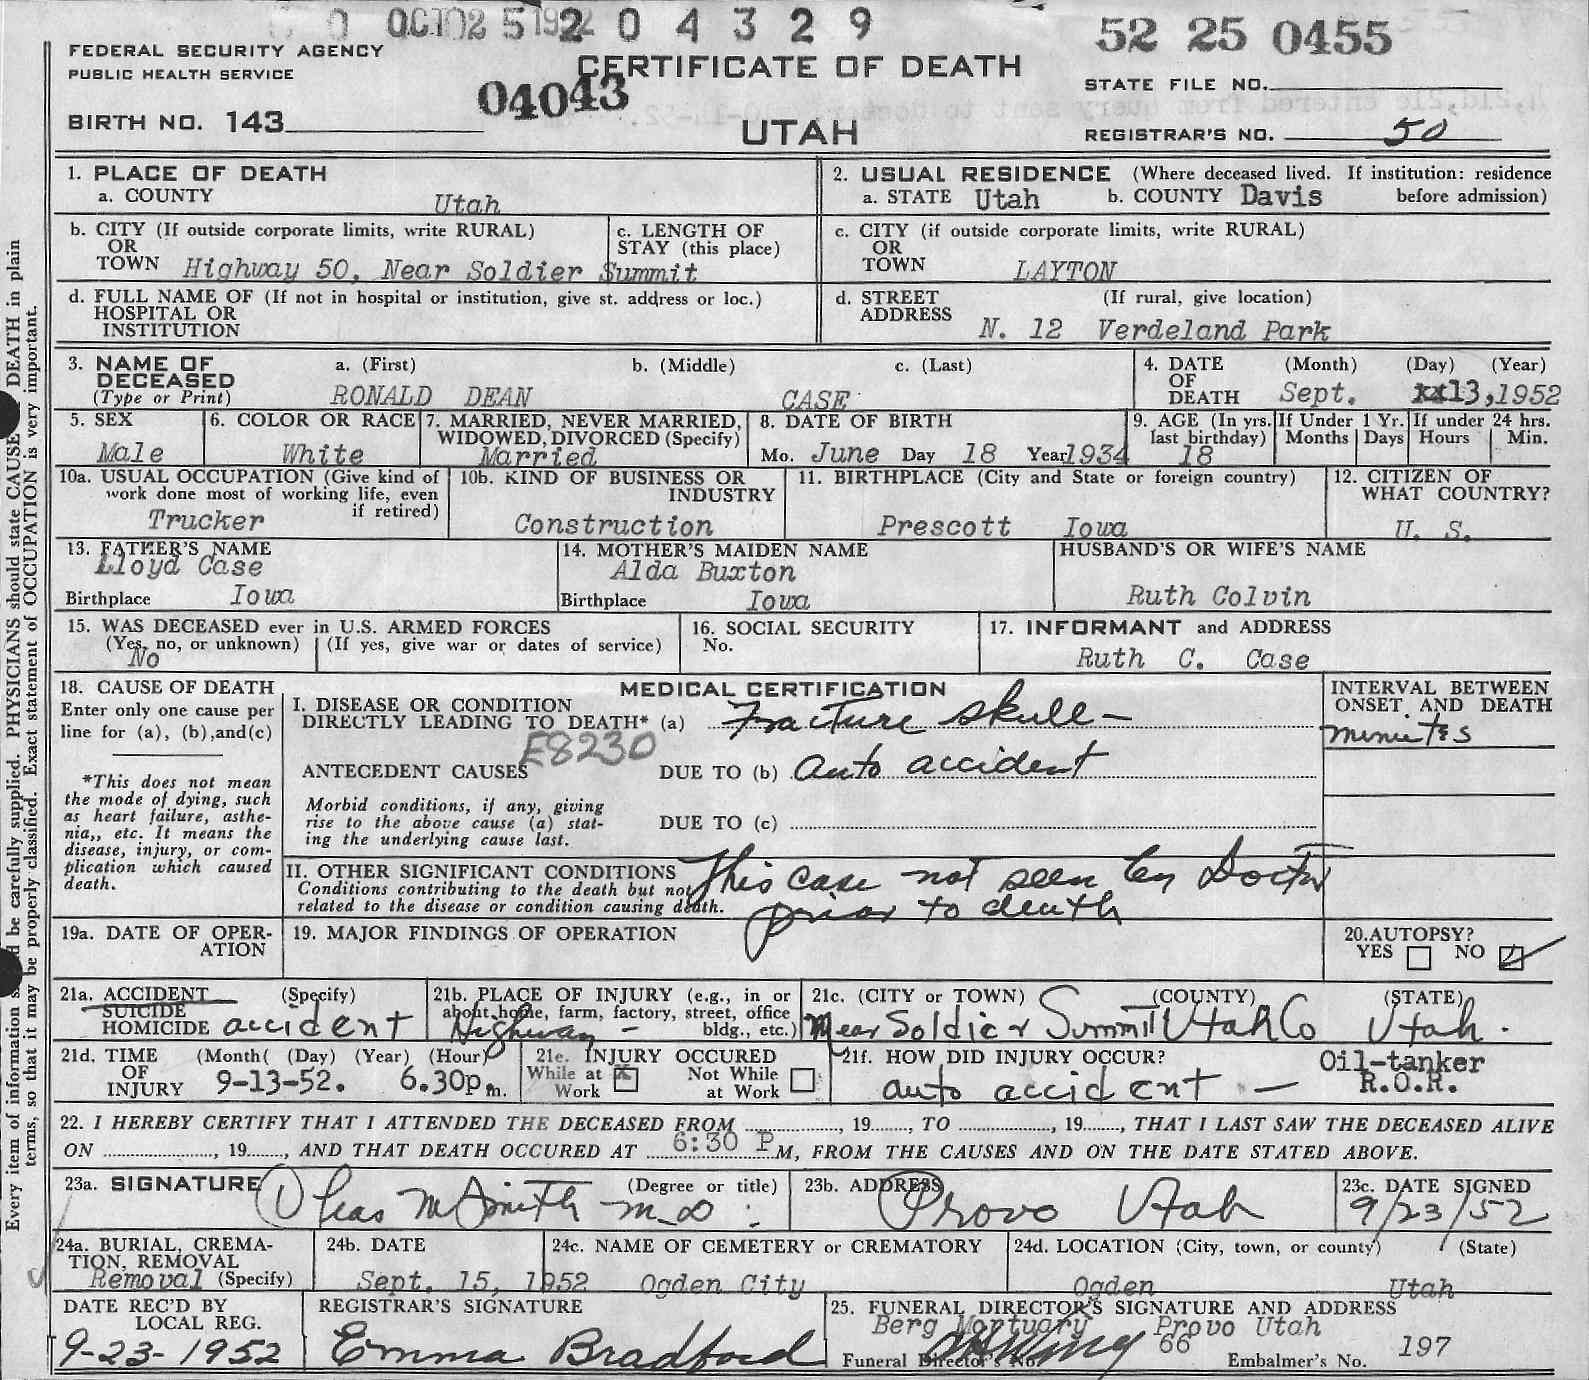 OCT 25 1952 204329
52 25 0455
FEDERAL SECURITY AGENCY
PUBLIC HEALTH SERVICE
CERTIFICATE OF DEATH
STATE FILE NO.
04043
BIRTH NO. 143
UTAH
REGISTRAR'S NO. 50
1. PLACE OF DEATH
a. COUNTY Utah
2. USUAL RESIDENCE (Where deceased lived. If institution: residence before admission)
a. STATE Utah b. COUNTY Davis
b. CITY (If outside corporate limits, write RURAL)
OR
TOWN Highway 50, Near Soldier Summit
c. LENGTH OF
STAY (this place)
c. CITY (if outside corporate limits, write RURAL)
OR
TOWN LAYTON
d. FULL NAME OF (If not in hospital or institution, give st. address or loc.)
HOSPITAL OR
INSTITUTION
d. STREET (If rural, give location)
ADDRESS
N. 12 Verdeland Park
3. NAME OF DECEASED (Type or Print)
a. (First) b. (Middle) c. (Last)
RONALD DEAN CASE
4. DATE OF DEATH (Month) (Day) (Year)
Sept. xx13, 1952
5. SEX
Male
6. COLOR OR RACE
White
7. MARRIED, NEVER MARRIED,
WIDOWED, DIVORCED (Specify)
Married
8. DATE OF BIRTH
Mo. June Day 18 Year 1934
9. AGE (In yrs. last birthday)
18
If Under 1 Yr. Months Days
If under 24 hrs. Hours Min.
10a. USUAL OCCUPATION (Give kind of
work done most of working life, even
if retired)
Trucker
10b. KIND OF BUSINESS OR
INDUSTRY
Construction
11. BIRTHPLACE (City and State or foreign country)
Prescott Iowa
12. CITIZEN OF
WHAT COUNTRY?
U. S.
13. FATHER'S NAME
Lloyd Case
Birthplace Iowa
14. MOTHER'S MAIDEN NAME
Alda Buxton
Birthplace Iowa
HUSBAND'S OR WIFE'S NAME
Ruth Colvin
15. WAS DECEASED ever in U.S. ARMED FORCES
(Yes, no, or unknown) (If yes, give war or dates of service)
No
16. SOCIAL SECURITY
No.
17. INFORMANT and ADDRESS
Ruth C. Case
18. CAUSE OF DEATH
Enter only one cause per
line for (a), (b), and (c)
*This does not mean
the mode of dying, such
as heart failure, asthe-
nia,, etc. It means the
disease, injury, or com-
plication which caused
death.
MEDICAL CERTIFICATION
I. DISEASE OR CONDITION
DIRECTLY LEADING TO DEATH* (a) Fracture skull -
E8230
ANTECEDENT CAUSES DUE TO (b) auto accident
Morbid conditions, if any, giving
rise to the above cause (a) stat-
ing the underlying cause last.
DUE TO (c)
INTERVAL BETWEEN
ONSET AND DEATH
minutes
II. OTHER SIGNIFICANT CONDITIONS
Conditions contributing to the death but not
related to the disease or condition causing death.
This case not seen by Doctor
prior to death
19a. DATE OF OPER-
ATION
19. MAJOR FINDINGS OF OPERATION
20. AUTOPSY?
YES NO
21a. ACCIDENT (Specify)
SUICIDE
HOMICIDE accident
21b. PLACE OF INJURY (e.g., in or
about home, farm, factory, street, office
bldg., etc.)
Highway -
21c. (CITY or TOWN) (COUNTY) (STATE)
Near Soldier Summit Utah Co Utah.
21d. TIME (Month( (Day) (Year) (Hour)
OF
INJURY 9-13-52. 6.30pm.
21e. INJURY OCCURED
While at Work x Not While at Work
21f. HOW DID INJURY OCCUR?
auto accident -
Oil-tanker
R.O.R.
22. I HEREBY CERTIFY THAT I ATTENDED THE DECEASED FROM , 19 , TO , 19 , THAT I LAST SAW THE DECEASED ALIVE
ON , 19 , AND THAT DEATH OCCURED AT 6:30 P M, FROM THE CAUSES AND ON THE DATE STATED ABOVE.
23a. SIGNATURE (Degree or title)
Chas M Smith M D
23b. ADDRESS
Provo Utah
23c. DATE SIGNED
9/23/52
24a. BURIAL, CREMA-
TION, REMOVAL
Removal (Specify)
24b. DATE
Sept. 15, 1952
24c. NAME OF CEMETERY or CREMATORY
Ogden City
24d. LOCATION (City, town, or county) (State)
Ogden Utah
DATE REC'D BY
LOCAL REG.
9-23-1952
REGISTRAR'S SIGNATURE
Emma Bradford
25. FUNERAL DIRECTOR'S SIGNATURE AND ADDRESS
Berg Mortuary Provo Utah
Funeral Director's No. 66 Embalmer's No. 197
Every item of information should be carefully supplied. PHYSICIANS should state CAUSE OF DEATH in plain
terms, so that it may be properly classified. Exact statement of OCCUPATION is very important.